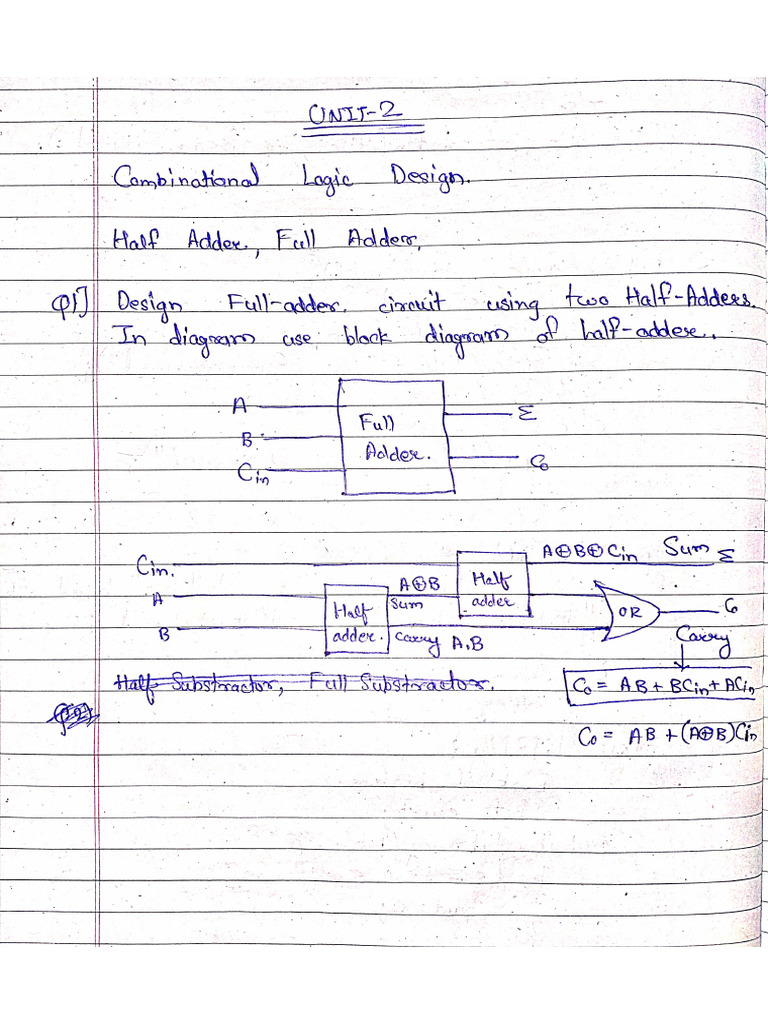 UNIT-2
Combinational Logic Design.
Half Adder, Full Adder,
Q1] Design Full-adder circuit using two Half-Adders.
In diagram use block diagram of half-adder.
A
B
Cin
Full
Adder.
Σ
C0
Cin.
A
B
Half
adder.
A⊕B
Sum
Carry A.B
Half
adder
A⊕B⊕Cin Sum Σ
OR
C0
Carry
Half Substractor, Full Substractor.
C0 = AB + BCin + ACin
Q2]
C0 = AB + (A⊕B)Cin